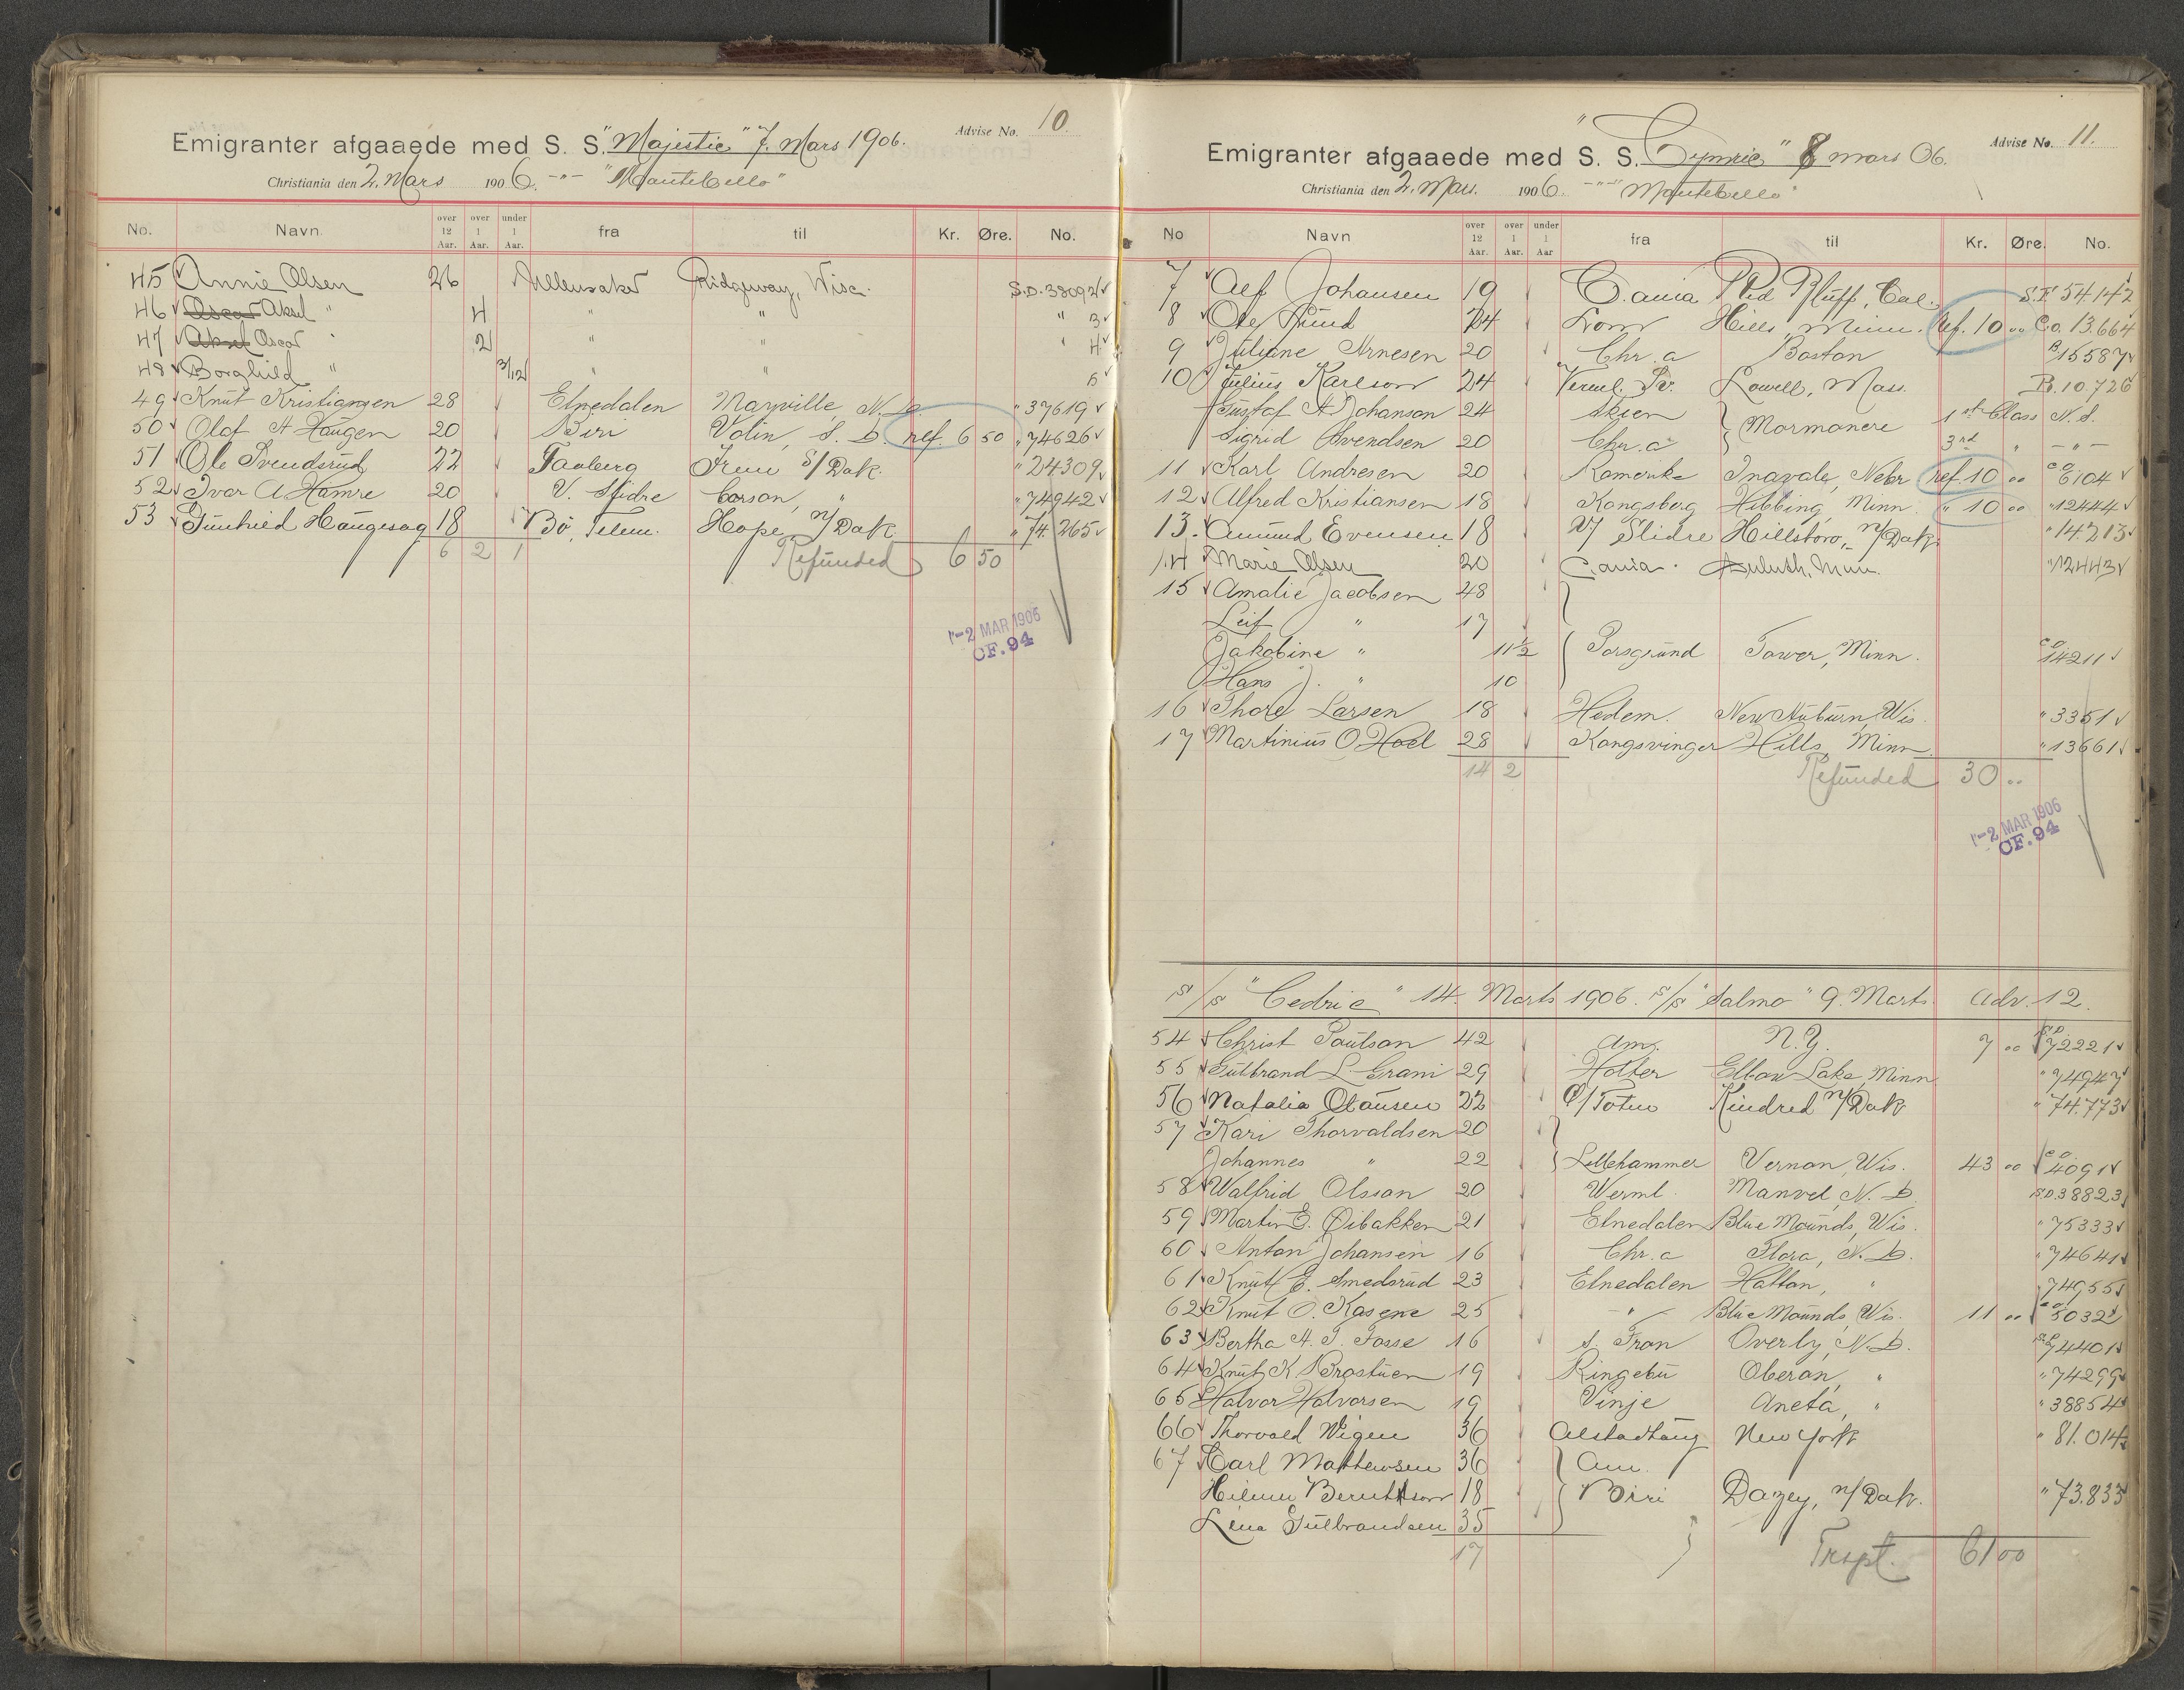 Advise No. 10.
Emigranter afgaaede med S. S. "Majestic" 7. Mars 1906.
Christiania den 2. Mars 1906. -"- "Montebello"
No. Navn over 12 Aar. over 1 Aar. under 1 Aar. fra til Kr. Øre. No.
45 Annie Olsen 26 Ullensaker Ridgeway, Wisc. S.D. 38092
46 Oscar Aksel " 4 " " " 3
47 Aksel Oscar " 2 " " " 4
48 Borghild " 3/12 " " 5
49 Knut Kristiansen 28 Etnedalen Mayville, N. D. " 37619
50 Olaf A Haugen 20 Biri Volin, S. D. ref. 6 50 " 74626
51 Ole Svendsrud 22 Faaberg Irene S/Dak. " 24309
52 Ivar A Hamre 20 V. Slidre Corson, " " 74942
53 Gunhild Haugesag 18 Bö, Telem. Hope, N/Dak " 74.265
6 2 1 Refunded 6 50
-2 MAR 1906
CF. 94
Advise No. 11.
Emigranter afgaaede med S. S. "Cymric" 8 mars 06.
Christiania den 2. Mars. 1906. -"- "Montebello"
No Navn over 12 Aar. over 1 Aar. under 1 Aar fra til Kr. Øre. No.
7 Alf Johansen 19 C.ania Red Bluff, Cal. S.F. 54142
8 Ole Lund 24 Lom Hills, Minn. Ref. 10 00 C.O. 13.664
9 Juliane Arnesen 20 Chr.a Boston B 15587
10 Julius Karlsson 24 Verml. Sv. Lowell, Mass. B. 10.726
Gustaf A Johanson 24 Skien } Marmanere 1st Class N. S.
Sigrid Svendsen 20 Chr.a 3rd " -"-
11 Karl Andresen 20 Romerike Inavale, Nebr ref. 10 00 C O 6104
12 Alfred Kristiansen 18 Kongsberg Hibbing, Minn. " 10 00 " 12444
13. Amund Evensen 18 V/ Slidre Hillsboro, N/Dak. " 14.213
14 Marie Olsen 20 C.ania. Duluth, Minn. " 12443
15 Amalie Jacobsen 48
Leif " 17
Jakobine " 11½ Porsgrund Tower, Minn. C O 14211
(Hans) " 10
16 Thore Larsen 18 Hedem. New Auburn, Wis. " 3351
17 Martinius O Hoel 28 Kongsvinger Hills, Minn. " 13661
14 2 Refunded 30 00
-2 MAR 1906
CF. 94
S/S "Cedric" 14. Marts 1906. S/S "Salmo" 9. Marts. Adv. 12.
54 Christ Paulson 42 Am. N. Y. 7 00 S D 72221
55 Gulbrand L. Grani 29 Holter Elbow Lake, Minn " 74947
56 Natalia Olausen 22 Ø/Toten Kindred N/Dak " 74.773
57 Kari Thorvaldsen 20
Johannes " 22 Lillehammer Vernon, Wis. 43 00 C O 4091
58 Walfrid Olsson 20 Werml. Manvel, N. D. S.D. 38823
59 Martin E. Øibakken 21 Etnedalen Blue Mounds, Wis. " 75333
60 Anton Johansen 16 Chr.a Flora, N. D. " 74641
61 Knut E. Smedsrud 23 Etnedalen Hatton, " 74955
62 Knut O. Kasene 25 -"- Blue Mounds, Wis. 11 00 C O 5032
63 Bertha H. J. Fosse 16 S. Fron Overly, N. D. S.D. 74401
64 Knut K Brostuen 19 Ringebu Oberon, " " 74299
65 Halvor Halvorsen 19 Vinje Aneta, " " 38854
66 Thorvald Wigen 36 Alstadhaug New York " 81.014
67 Carl Mathewsen 36 Am.
Hilmen Berntsson 18 Biri Dazey, N/Dak. " 73.833
Lina Gulbrandsen 35
17 Trspt. 61 00